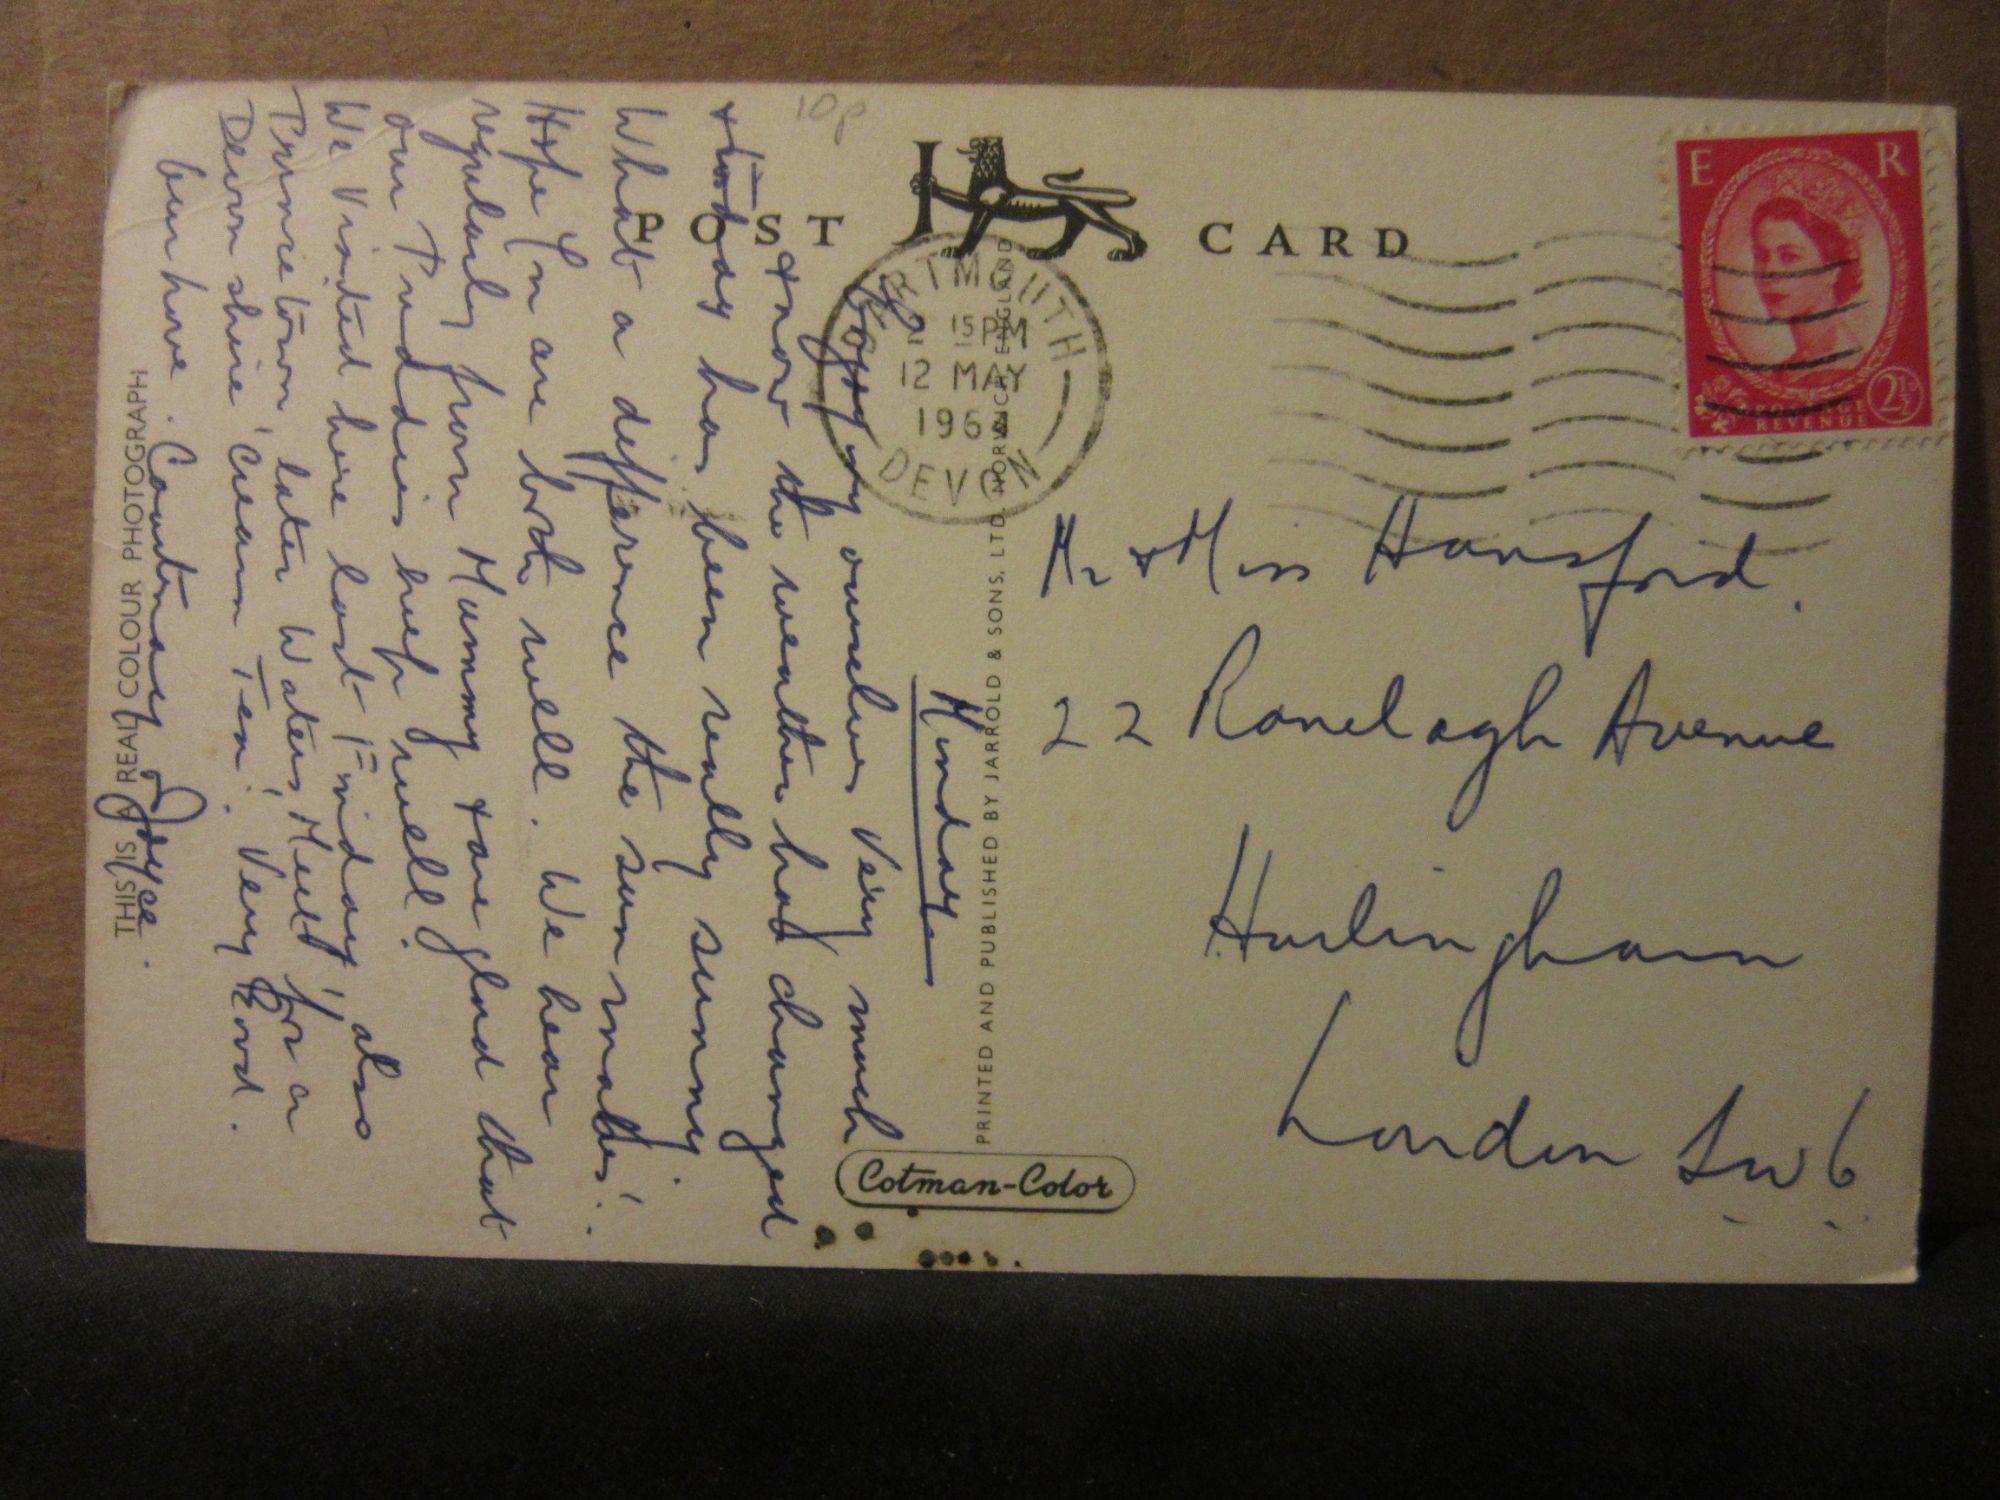 10p
POST CARD
E R
POSTAGE
REVENUE
2½D
DARTMOUTH
15 PM
12 MAY
196
DEVON
Monday
Enjoying ourselves very much
& now the weather has changed
& today has been really sunny.
What a difference the sun makes!.
Hope you are both well. We hear
regularly from Mummy & are glad that
our Puddies keep well!
We visited here last Friday, also
Princetown later Waters Meet for a
Devonshire 'Cream Tea'. Very Good.
Courtnay & Joyce.
Mr & Miss Hansford.
22 Ranelagh Avenue
Hurlingham
London SW6
PRINTED AND PUBLISHED BY JARROLD & SONS. LTD. NORWICH ENGLAND
THIS IS A REAL COLOUR PHOTOGRAPH
Cotman-Color